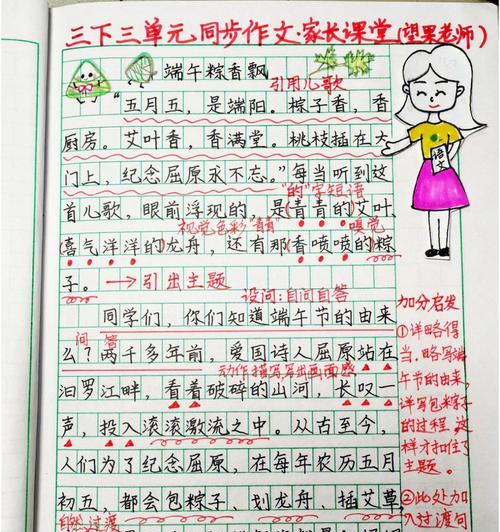 三下三单元同步作文·家长课堂(望果老师)
端午粽香飘
引用儿歌
“五月五，是端阳。粽子香，香
厨房。艾叶香，香满堂。桃枝插在大
门上，纪念屈原永不忘。”每当听到这
“的”字短语
首儿歌，眼前浮现的，是(青青的)艾叶、
视觉色彩“青青” 嗅觉
(喜气洋洋的)龙舟，还有那(香喷喷的)粽
子。→引出主题
设问：自问自答
同学们，你们知道端午节的由来
问 答
么？两千多年前，爱国诗人屈原站在
动作描写，写出画面感
汨罗江畔，看着破碎的山河，长叹一
声，投入滚滚激流之中。从古至今，
人们为了纪念屈原，在每年农历五月
初五，都会包粽子、划龙舟、插艾草，
自然过渡
语文
加分启发
①详略得
当。略写端
午节的由来，
详写包粽子
的过程。这
样才扣住了
主题。
②此处加
入过渡句